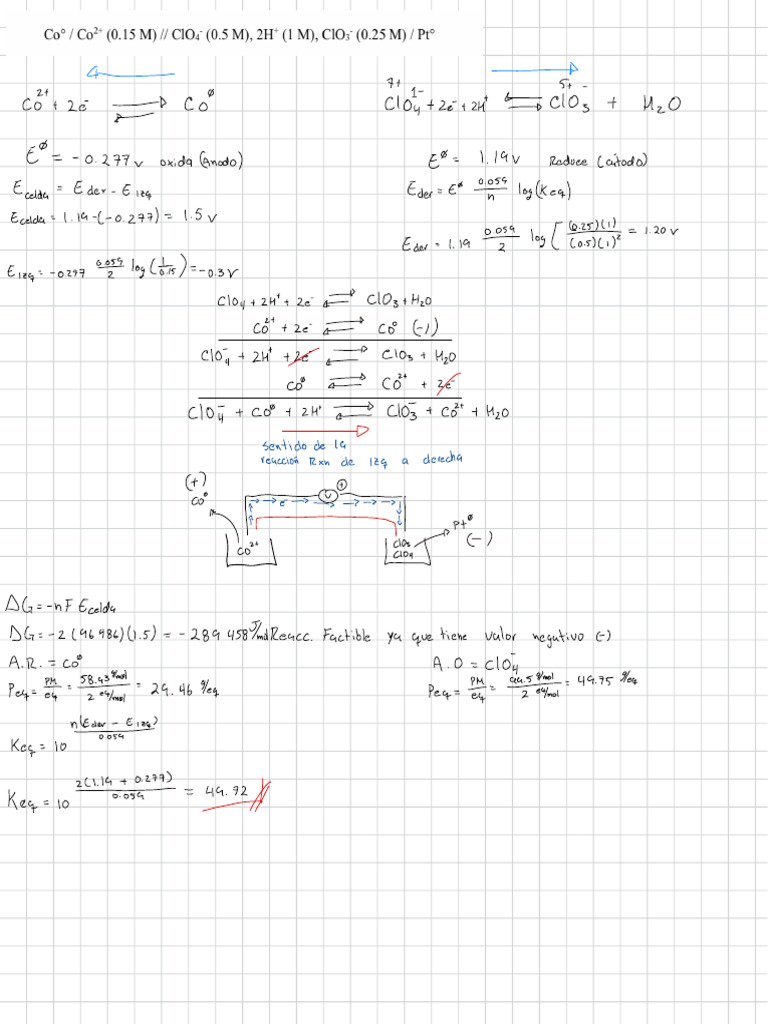 Co° / Co²⁺ (0.15 M) // ClO₄⁻ (0.5 M), 2H⁺ (1 M), ClO₃⁻ (0.25 M) / Pt°
Co²⁺ + 2e⁻ ⇄ Co⁰
7+ 1- 5+ -
ClO₄ + 2e⁻ + 2H⁺ ⇄ ClO₃ + H₂O
E⁰ = -0.277 v oxida (Anodo)
E celda = E der - E izq
E celda = 1.19-(-0.277) = 1.5 v
E izq = -0.297 0.059/2 log(1/0.15) = -0.3 v
E⁰ = 1.19 v Reduce (cátodo)
E der = E⁰ 0.059/n log(Keq)
E der = 1.19 0.059/2 log[(0.25)(1)/(0.5)(1)² = 1.20 v
ClO₄ + 2H⁺ + 2e⁻ ⇄ ClO₃ + H₂O
Co²⁺ + 2e⁻ ⇄ Co⁰ (-1)
ClO₄⁻ + 2H⁺ + 2e⁻ ⇄ ClO₃ + H₂O
Co⁰ ⇄ Co²⁺ + 2e⁻
ClO₄⁻ + Co⁰ + 2H⁺ ⇄ ClO₃⁻ + Co²⁺ + H₂O
sentido de la
reacción Rxn de izq a derecha
(+)
Co⁰
e⁻
V
+
Co²⁺
ClO₃
ClO₄
Pt⁰
(-)
ΔG = -nF Ecelda
ΔG = -2 (96 986)(1.5) = -289 458 J/mol Reacc. Factible ya que tiene valor negativo (-)
A.R. = Co⁰
Peq = PM/eq = 58.93 g/mol / 2 eq/mol = 29.46 g/eq
A.O = ClO₄⁻
Peq = PM/eq = 99.5 g/mol / 2 eq/mol = 49.75 g/eq
Keq = 10 n(Eder - Eizq)/0.059
Keq = 10 2(1.19 + 0.277)/0.059 = 49.72